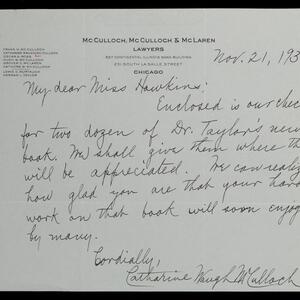 McCulloch, McCulloch & McLaren
LAWYERS
231 SOUTH LA SALLE STREET
CHICAGO
FRANK H. McCULLOCH
CATHARINE WAUGH McCULLOCH
HUGH W. McCULLOCH
Nov. 21, 193
My dear Miss Hawkins:
Enclosed is our chec
for two dozen of Dr. Taylor's new
book. We shall give them where th
will be appreciated. We can realiz
how glad you are that your hard
work on that book will soon enjoy
by many.
Cordially,
Catharine Waugh McCulloch